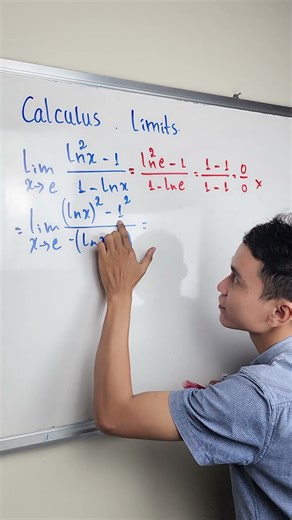 Calculus Limits.
lim x→e (ln²x - 1)/(1 - lnx) = (ln²e - 1)/(1 - lne) = (1-1)/(1-1) = 0/0 ×
= lim x→e ((lnx)² - 1²)/(-(ln =